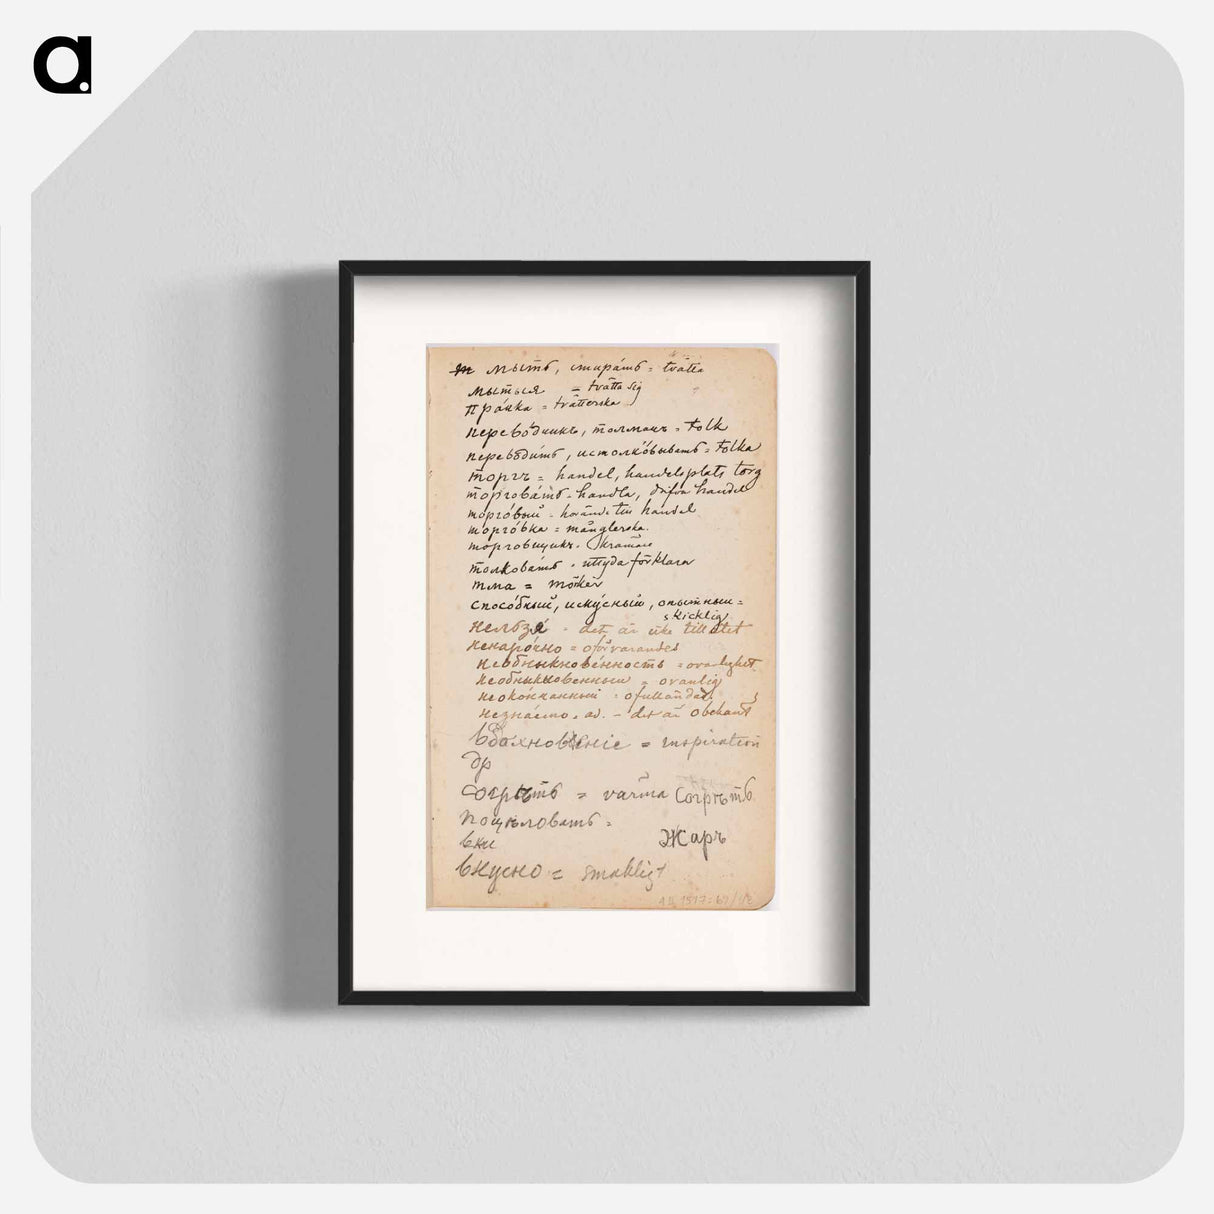 a.
мыть, стирать = tvätta
мыться = tvätta sig
прачка = tvätterska
переводчикъ, толмачъ = tolk
переводить, истолковывать = tolka
торгъ = handel, handelsplats torg
торговать - handla, drifva handel
торговый - hörande till handel
торговка = månglerska.
торговщикъ - krämare
толковать - uttyda förklara
тма = mörker
способный, искусный, опытный =
skicklig
нельзя - det är icke tillåtet
ненарочно = oförvarandes
необыкновенность = ovanlighet
необыкновенный = ovanlig
неоконченный - ofulländad
незнаемо. ad. - det är obekant
вдохновеніе = inspiration
др
согрѣть = värma Согрѣть
поцѣловать =
вки Жаръ
вкусно = smakligt